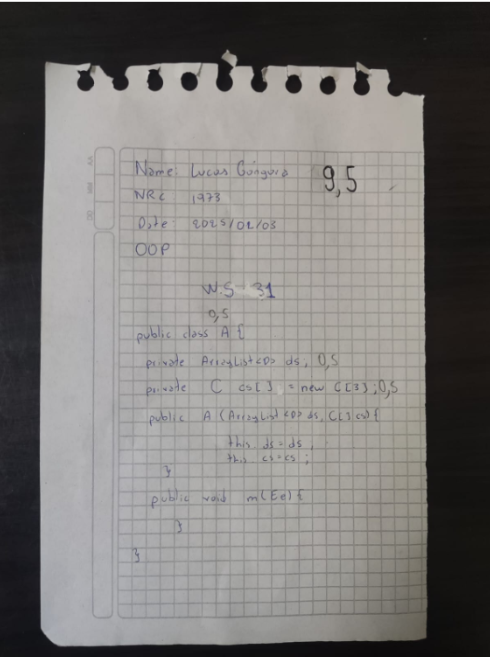 Name: Lucas Góngora
9,5
NRC 1973
Date 2025/02/03
OOP
W.S 31
0,5
public class A {
private ArrayList<D> ds; 0,5
private C cs[] = new C[3]; 0,5
public A (ArrayList<D> ds, C[] cs) {
this. ds = ds ;
this. cs = cs ;
}
public void m(E e) {
}
}